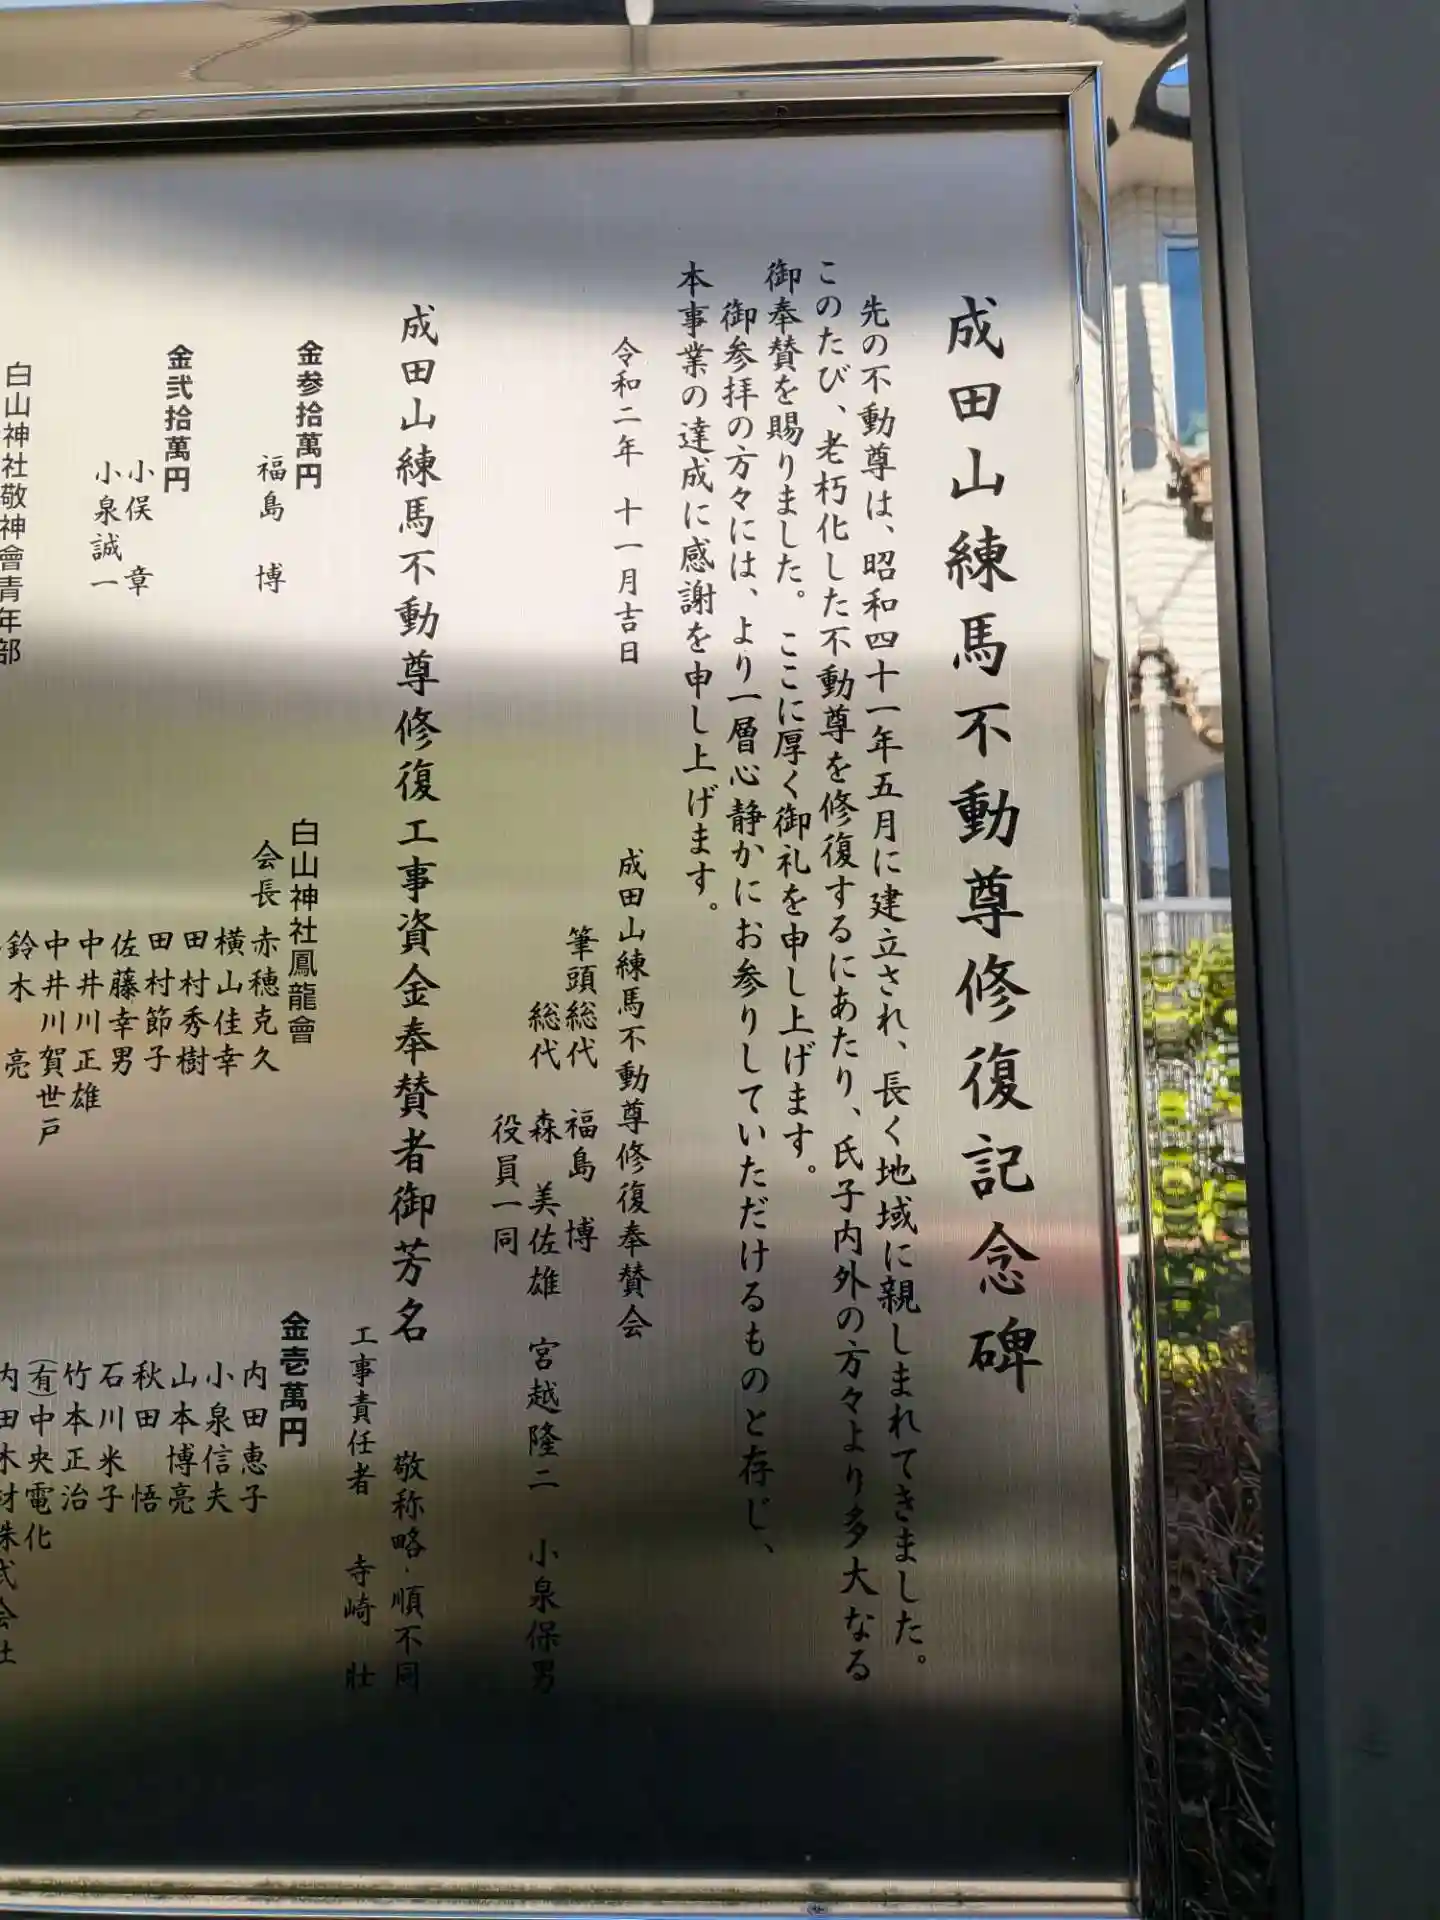 成田山練馬不動尊修復記念碑
先の不動尊は、昭和四十一年五月に建立され、長く地域に親しまれてきました。
このたび、老朽化した不動尊を修復するにあたり、氏子内外の方々より多大なる
御奉賛を賜りました。ここに厚く御礼を申し上げます。
御参拝の方々には、より一層心静かにお参りしていただけるものと存じ、
本事業の達成に感謝を申し上げます。
令和二年 十一月吉日
成田山練馬不動尊修復奉賛会
筆頭総代 福島 博
総代 森 美佐雄 宮越隆二 小泉保男
役員一同
成田山練馬不動尊修復工事資金奉賛者御芳名
敬称略・順不同
工事責任者 寺崎 壮
金参拾萬円
福島 博
金弐拾萬円
小俣 章
小泉誠一
白山神社敬神會青年部
白山神社鳳龍會
会長 赤穂克久
横山佳幸
田村秀樹
田村節子
佐藤幸男
中井川正雄
中井川賀世戸
鈴木 亮
金壱萬円
内田恵子
小泉信夫
山本博亮
秋田 悟
石川米子
竹本正治
(有)中央電化
内田木材株式会社